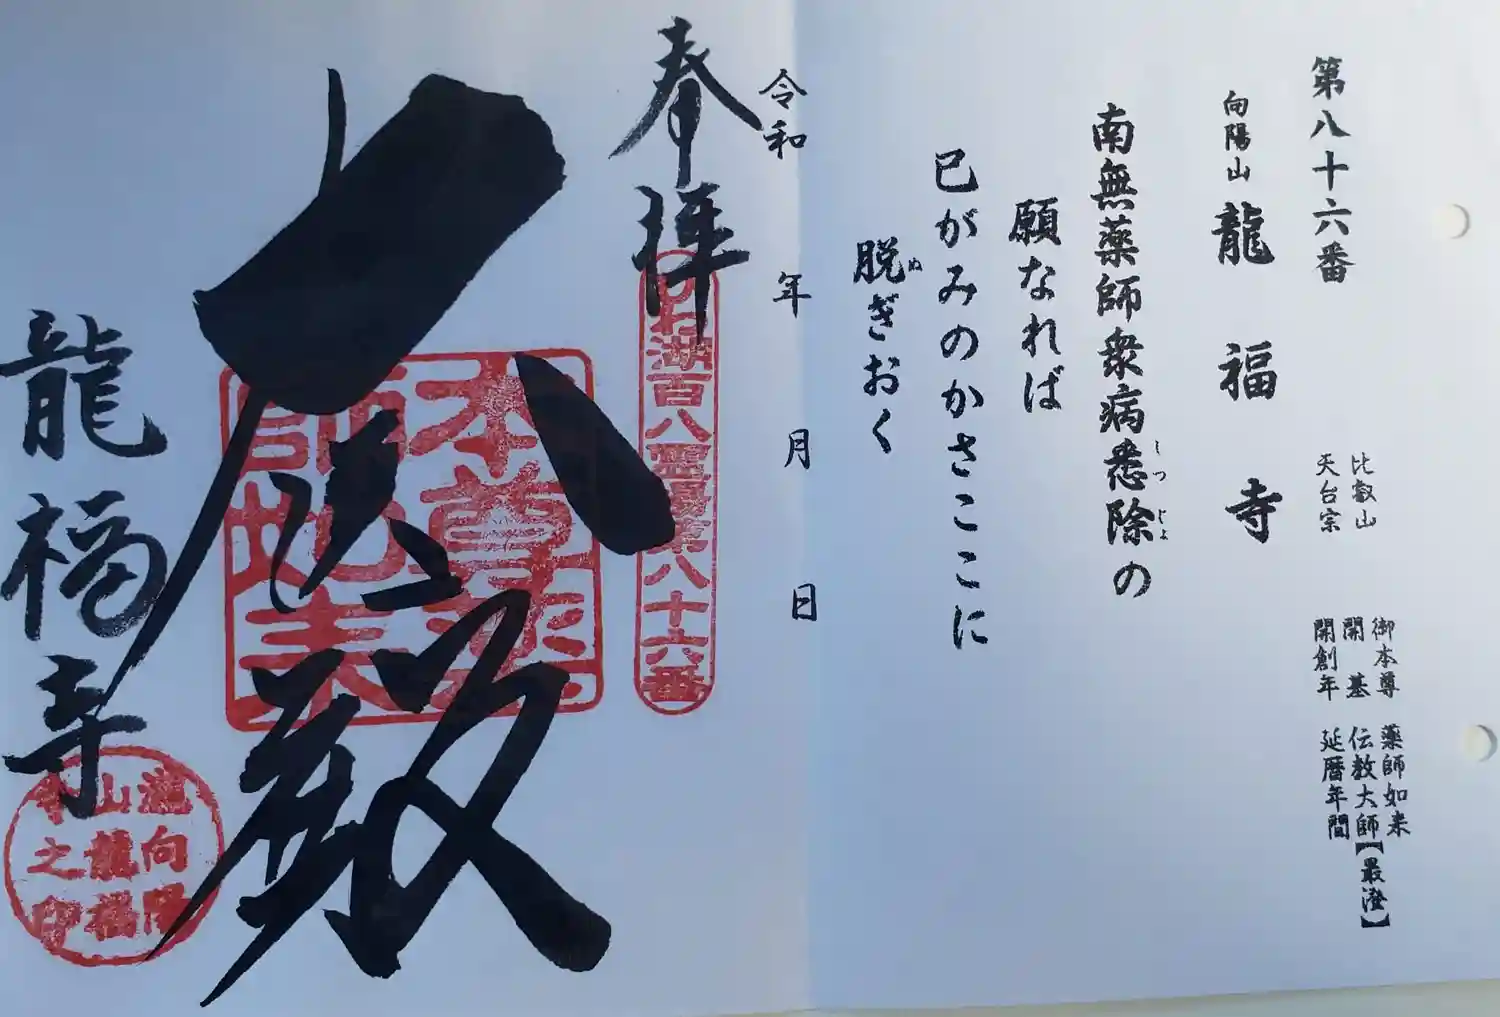 第八十六番
向陽山 龍福寺
比叡山
天台宗
御本尊 薬師如来
開基 伝教大師【最澄】
開創年 延暦年間
南無薬師衆病悉除の
しつ
じよ
願なれば
已がみのかさここに
脱ぎおく
ぬ
令和 年 月 日
奉拝
びわ湖百八霊場第八十六番
本尊薬師如来
医王殿
龍福寺
瀧向陽
山龍福
寺之印